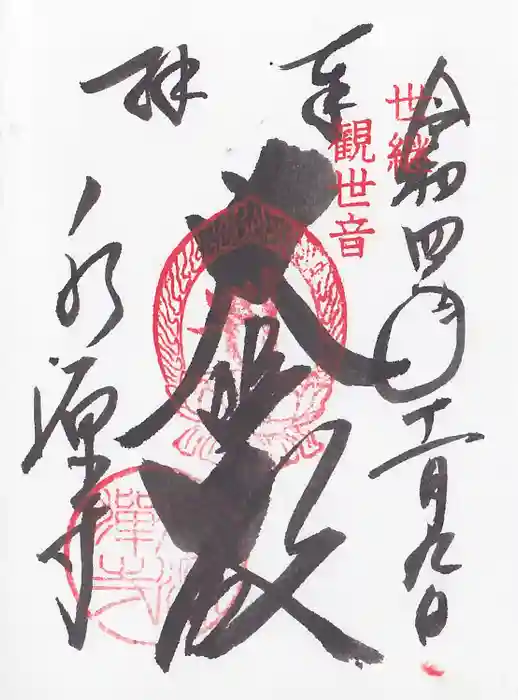 令和四年十一月九日
奉
世継
観世音
大悲殿
拝
永源寺